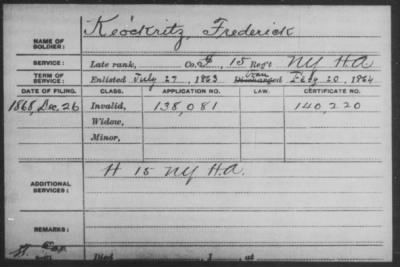 NAME OF SOLDIER: Keöckritz, Frederick
SERVICE: Late rank, Co. G, 15 Reg't NY HA
TERM OF SERVICE: Enlisted July 27, 1863 Discharged Feby 20, 1864
DATE OF FILING. CLASS. APPLICATION NO. LAW. CERTIFICATE NO.
1868, Dec. 26 Invalid, 138,081 140,220
Widow,
Minor,
ADDITIONAL SERVICES: H 15 NY H.A.
REMARKS:
Died , 1 , at